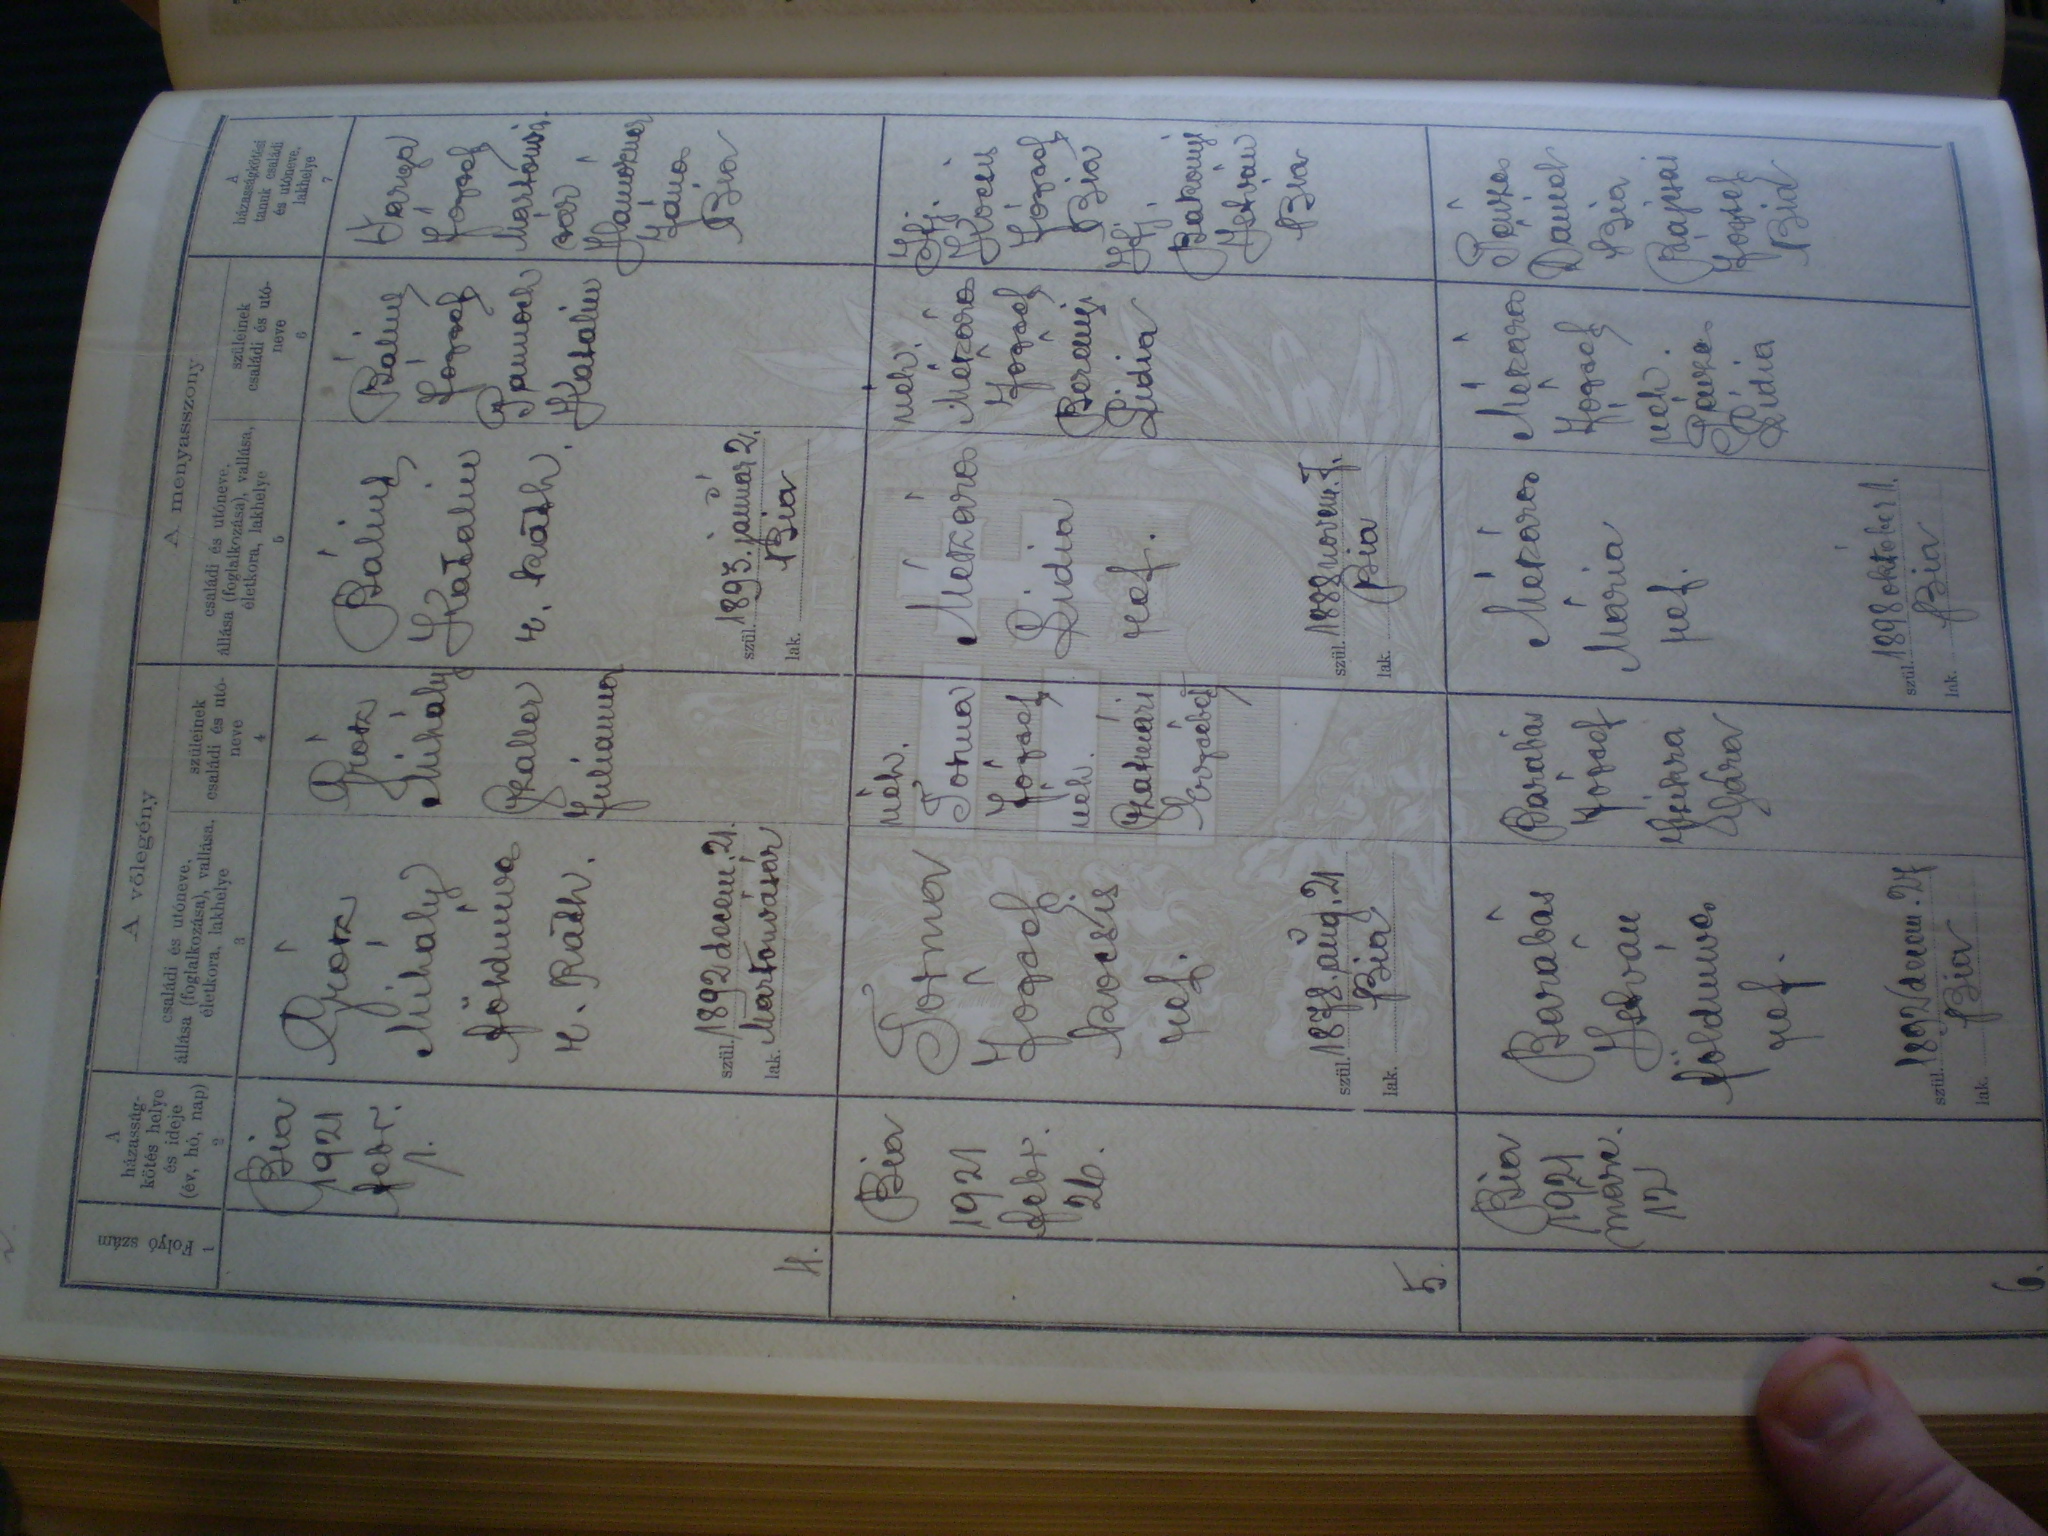 1
Folyó
szám
A
házasság-
kötés helye
és ideje
(év, hó, nap)
2
A vőlegény
családi és utóneve,
állása (foglalkozása), vallása,
életkora, lakhelye
3
szüleinek
családi és utó-
neve
4
A menyasszony
családi és utóneve,
állása (foglalkozása), vallása,
életkora, lakhelye
5
szüleinek
családi és utó-
neve
6
A
házasságkötési
tanuk családi
és utóneve,
lakhelye
7
4.
Bia
1921
febr.
1.
Mihály
földmüves
r. kath.
szül. 1892 decem. 21.
lak. Martonvásár
Mihály
Juliánna
Bálint
Katalin
r. kath.
szül. 1893. január 2.
lak. Bia
Bálint
József
Katalin
Varga
József
Martonvá-
sár
János
Bia
5.
Bia
1921
febr.
26.
Torma
József
kocsis
ref.
szül. 1878. aug. 21
lak. Bia
néh.
Torma
József
néh.
Erzsébet
Lidia
ref.
szül. 1888 novem. 7.
lak. Bia
néh.
József
Lidia
Ifj.
Kocsis
József
Bia
Ifj.
Bakonyi
István
Bia
6.
Bia
1921
márc.
12
Barabás
István
földműves
ref.
szül. 1892 decem. 27
lak. Bia
Barabás
József
Szikra
Sára
Mária
ref.
szül. 1898 október 1.
lak. Bia
József
néh.
Lidia
Dániel
Bia
József
Bia